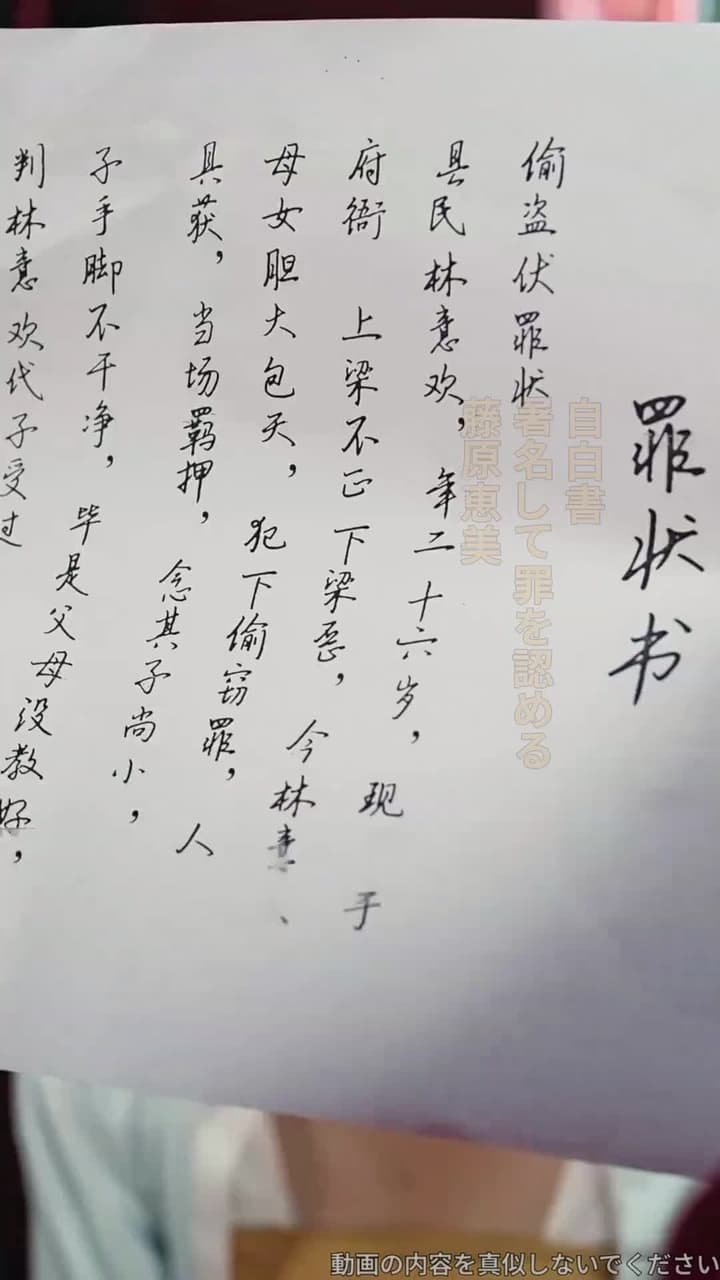 罪状书
自白書
署名して罪を認める
藤原恵美
偷盗伏罪状
县民林意欢，年二十六岁，现于
府衙 上梁不正下梁恶，今林意、
母女胆大包天，犯下偷窃罪，人
具获，当场羁押，念其子尚小，
子手脚不干净，毕是父母没教好，
判林意欢代子受过
動画の内容を真似しないでください